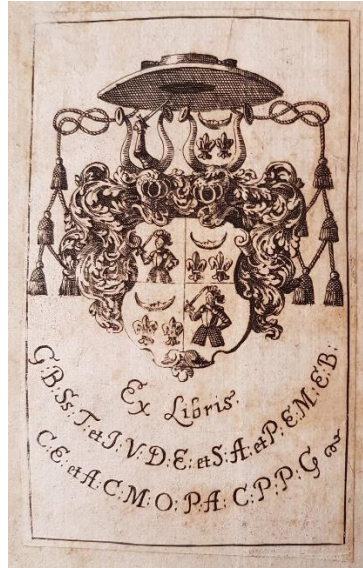 Ex Libris.
G: B. Ss: T: et J: V: D: E: et S: A: et P: E: M: E: B:
C: E: et A: C: M: O: P: A: C: P: P: G